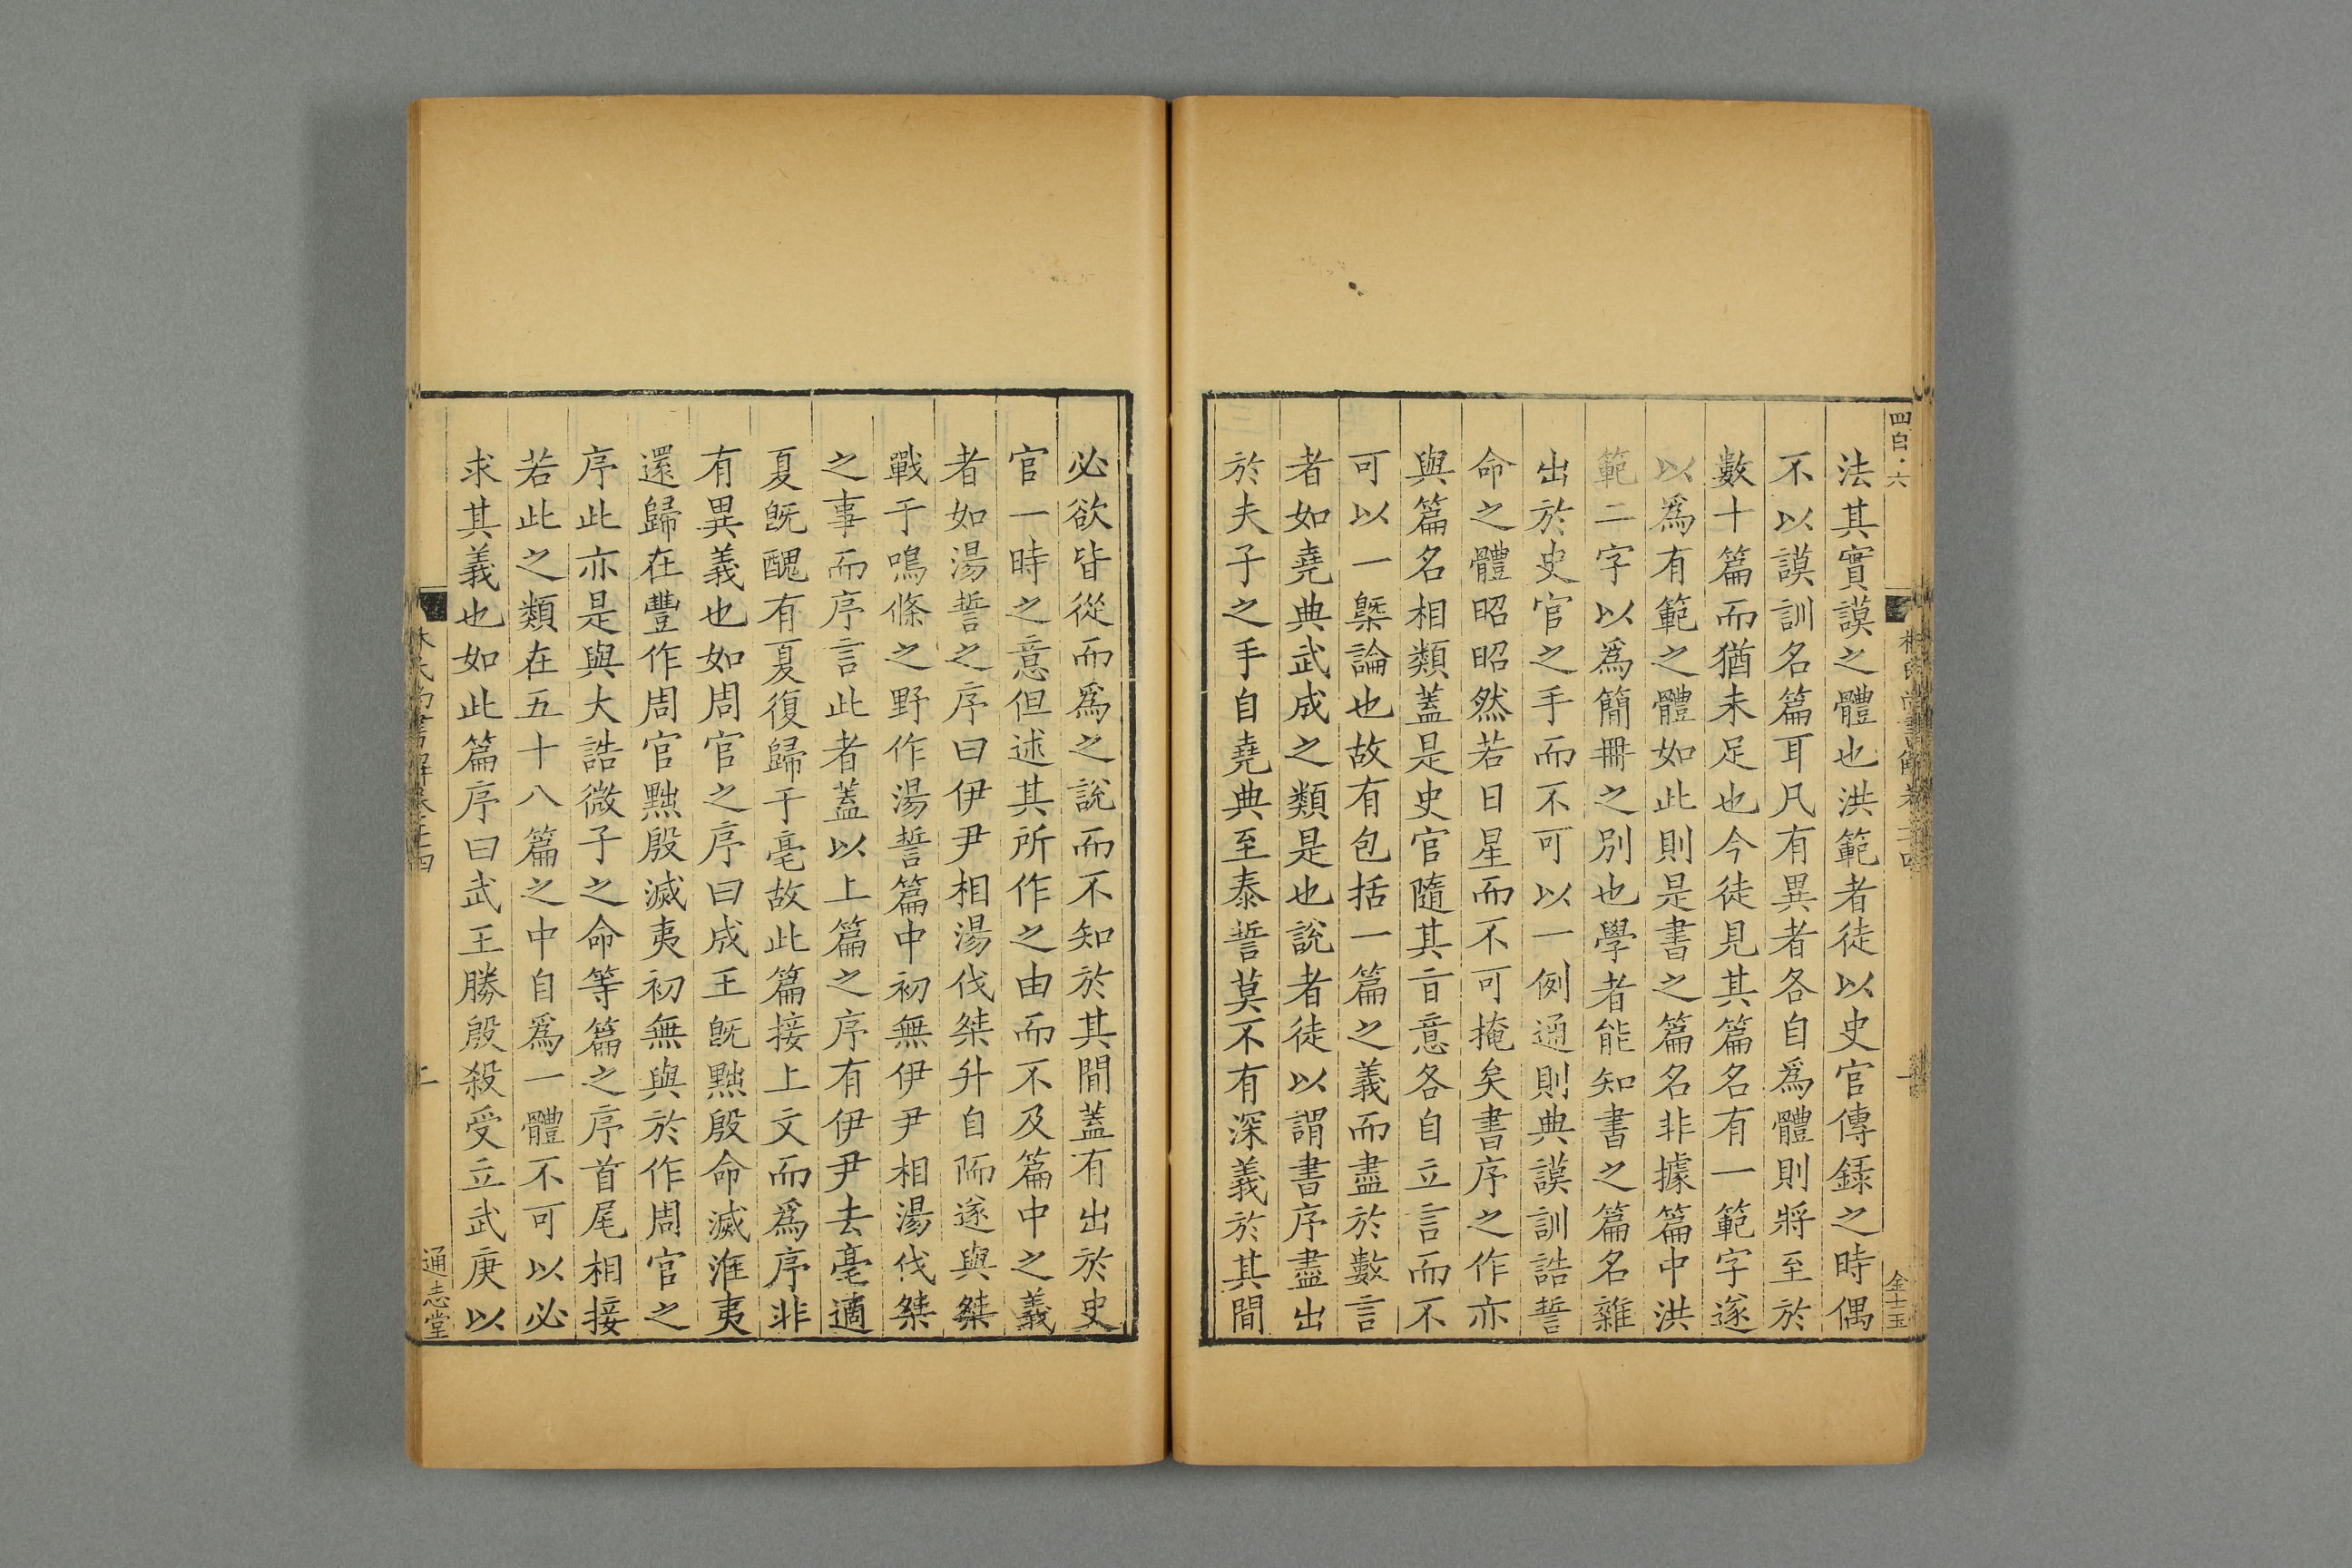 四百六
金士玉
法其實謨之體也洪範者徒以史官傳錄之時偶
不以謨訓名篇耳凡有異者各自爲體則將至於
數十篇而猶未足也今徒見其篇名有一範字遂
以爲有範之體如此則是書之篇名非據篇中洪
範二字以爲簡冊之別也學者能知書之篇名雜
出於史官之手而不可以一例通則典謨訓誥誓
命之體昭昭然若日星而不可掩矣書序之作亦
與篇名相類蓋是史官隨其㫖意各自立言而不
可以一槩論也故有包括一篇之義而盡於數言
者如堯典武成之類是也說者徒以謂書序盡出
於夫子之手自堯典至泰誓莫不有深義於其間
必欲皆從而爲之說而不知於其間蓋有出於史
官一時之意但述其所作之由而不及篇中之義
者如湯誓之序曰伊尹相湯伐桀升自陑遂與桀
戰于鳴條之野作湯誓篇中初無伊尹相湯伐桀
之事而序言此者蓋以上篇之序有伊尹去亳適
夏旣醜有夏復歸于亳故此篇接上文而爲序非
有異義也如周官之序曰成王旣黜殷命滅淮夷
還歸在豐作周官黜殷滅夷初無與於作周官之
序此亦是與大誥微子之命等篇之序首尾相接
若此之類在五十八篇之中自爲一體不可以必
求其義也如此篇序曰武王勝殷殺受立武庚以
林氏尚書解卷二十四
通志堂